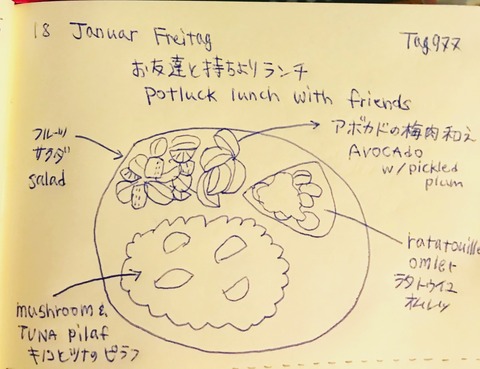 18 Januar Freitag
Tag977
お友達と持ちよりランチ
potluck lunch with friends
フルーツ
サラダ
salad
アボカドの梅肉和え
AVOCADO
w/pickled
plum
ratatouille
omler
ラタトウイユ
オムレツ
mushroom &
TUNA pilaf
キノコとツナのピラフ